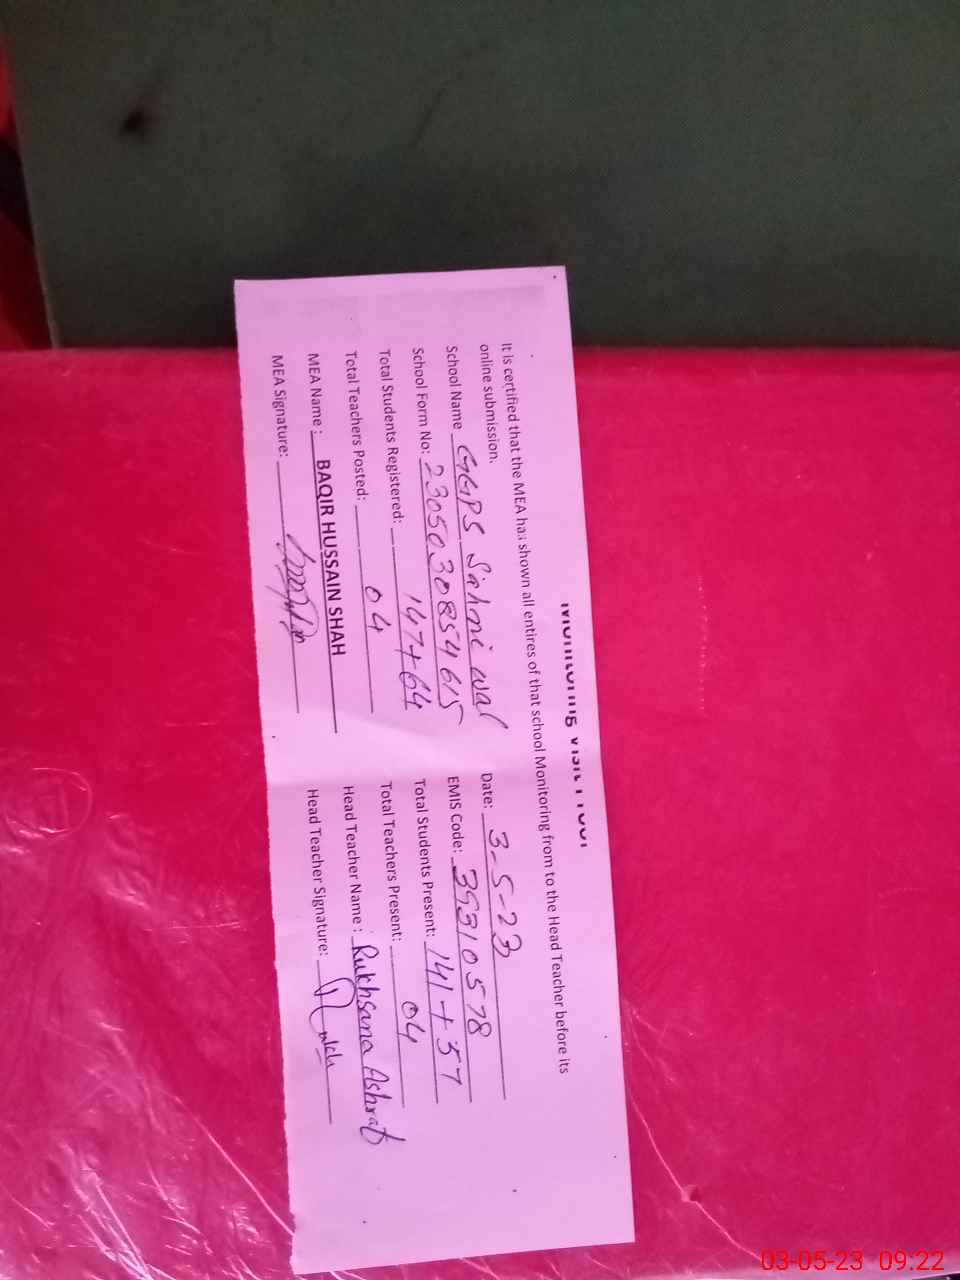 Monitoring Visit Proof
It is certified that the MEA has shown all entires of that school Monitoring from to the Head Teacher before its
online submission.
School Name GGPS Sahni wal Date: 3-5-23
School Form No: 2305030854615 EMIS Code: 39310578
Total Students Registered: 147+64 Total Students Present: 141+57
Total Teachers Posted: 04 Total Teachers Present: 04
MEA Name : BAQIR HUSSAIN SHAH Head Teacher Name : Rukhsana Ashraf
MEA Signature: Head Teacher Signature:
03-05-23 09:22